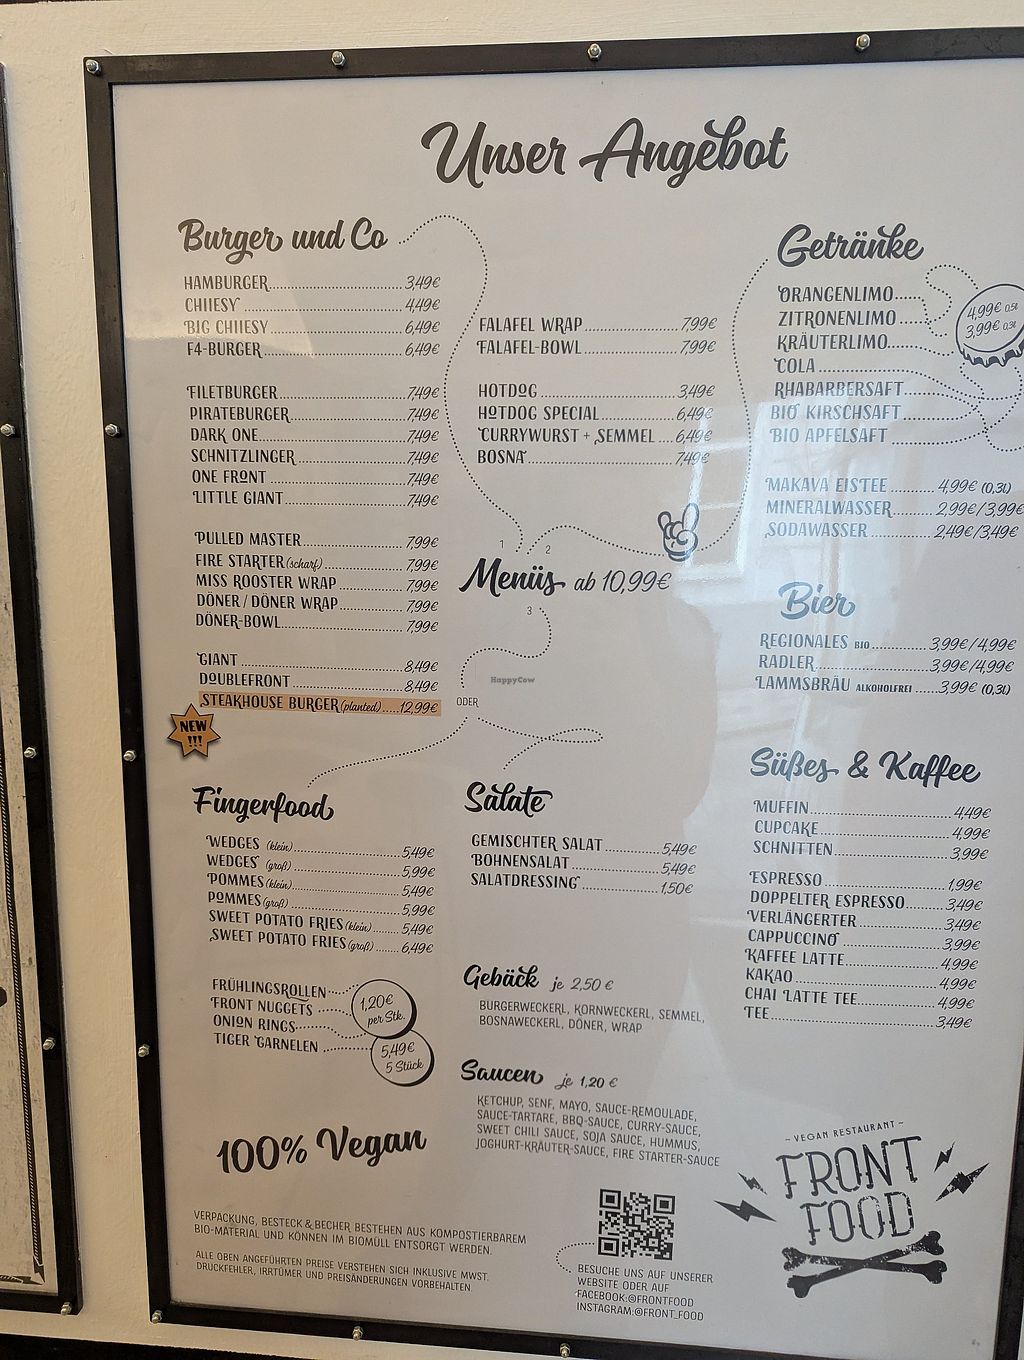 Unser Angebot
Burger und Co
HAMBURGER 3,49€
CHIIESY 4,49€
BIG CHIIESY 6,49€
F4-BURGER 6,49€
FILETBURGER 7,49€
PIRATEBURGER 7,49€
DARK ONE 7,49€
SCHNITZLINGER 7,49€
ONE FRONT 7,49€
LITTLE GIANT 7,49€
PULLED MASTER 7,99€
FIRE STARTER (scharf) 7,99€
MISS ROOSTER WRAP 7,99€
DÖNER / DÖNER WRAP 7,99€
DÖNER-BOWL 7,99€
GIANT 8,49€
DOUBLEFRONT 8,49€
STEAKHOUSE BURGER (planted) 12,99€
NEW
!!!
FALAFEL WRAP 7,99€
FALAFEL-BOWL 7,99€
HOTDOG 3,49€
HOTDOG SPECIAL 6,49€
CURRYWURST + SEMMEL 6,49€
BOSNA 7,49€
1 2
Menüs ab 10,99€
3
HappyCow
ODER
Getränke
ORANGENLIMO
ZITRONENLIMO
KRÄUTERLIMO
COLA
RHABARBERSAFT
BIO KIRSCHSAFT
BIO APFELSAFT
4,99€ 0,5l
3,99€ 0,3l
MAKAVA EISTEE 4,99€ (0,3l)
MINERALWASSER 2,99€/3,99€
SODAWASSER 2,49€/3,49€
Bier
REGIONALES BIO 3,99€/4,99€
RADLER 3,99€/4,99€
LAMMSBRÄU ALKOHOLFREI 3,99€ (0,3l)
Süßes & Kaffee
MUFFIN 4,49€
CUPCAKE 4,99€
SCHNITTEN 3,99€
ESPRESSO 1,99€
DOPPELTER ESPRESSO 3,49€
VERLÄNGERTER 3,49€
CAPPUCCINO 3,99€
KAFFEE LATTE 4,99€
KAKAO 4,99€
CHAI LATTE TEE 4,99€
TEE 3,49€
Fingerfood
WEDGES (klein) 5,49€
WEDGES (groß) 5,99€
POMMES (klein) 5,49€
POMMES (groß) 5,99€
SWEET POTATO FRIES (klein) 5,49€
SWEET POTATO FRIES (groß) 6,49€
FRÜHLINGSROLLEN
FRONT NUGGETS
ONION RINGS
TIGER GARNELEN
1,20€
per Stk.
5,49€
5 Stück
Salate
GEMISCHTER SALAT 5,49€
BOHNENSALAT 5,49€
SALATDRESSING 1,50€
Gebäck je 2,50 €
BURGERWECKERL, KORNWECKERL, SEMMEL,
BOSNAWECKERL, DÖNER, WRAP
Saucen je 1,20 €
KETCHUP, SENF, MAYO, SAUCE-REMOULADE,
SAUCE-TARTARE, BBQ-SAUCE, CURRY-SAUCE,
SWEET CHILI SAUCE, SOJA SAUCE, HUMMUS,
JOGHURT-KRÄUTER-SAUCE, FIRE STARTER-SAUCE
100% Vegan
VERPACKUNG, BESTECK & BECHER BESTEHEN AUS KOMPOSTIERBAREM
BIO-MATERIAL UND KÖNNEN IM BIOMÜLL ENTSORGT WERDEN.
ALLE OBEN ANGEFÜHRTEN PREISE VERSTEHEN SICH INKLUSIVE MWST.
DRUCKFEHLER, IRRTÜMER UND PREISÄNDERUNGEN VORBEHALTEN.
BESUCHE UNS AUF UNSERER
WEBSITE ODER AUF
FACEBOOK:@FRONTFOOD
INSTAGRAM:@FRONT_FOOD
~ VEGAN RESTAURANT ~
FRONT
FOOD